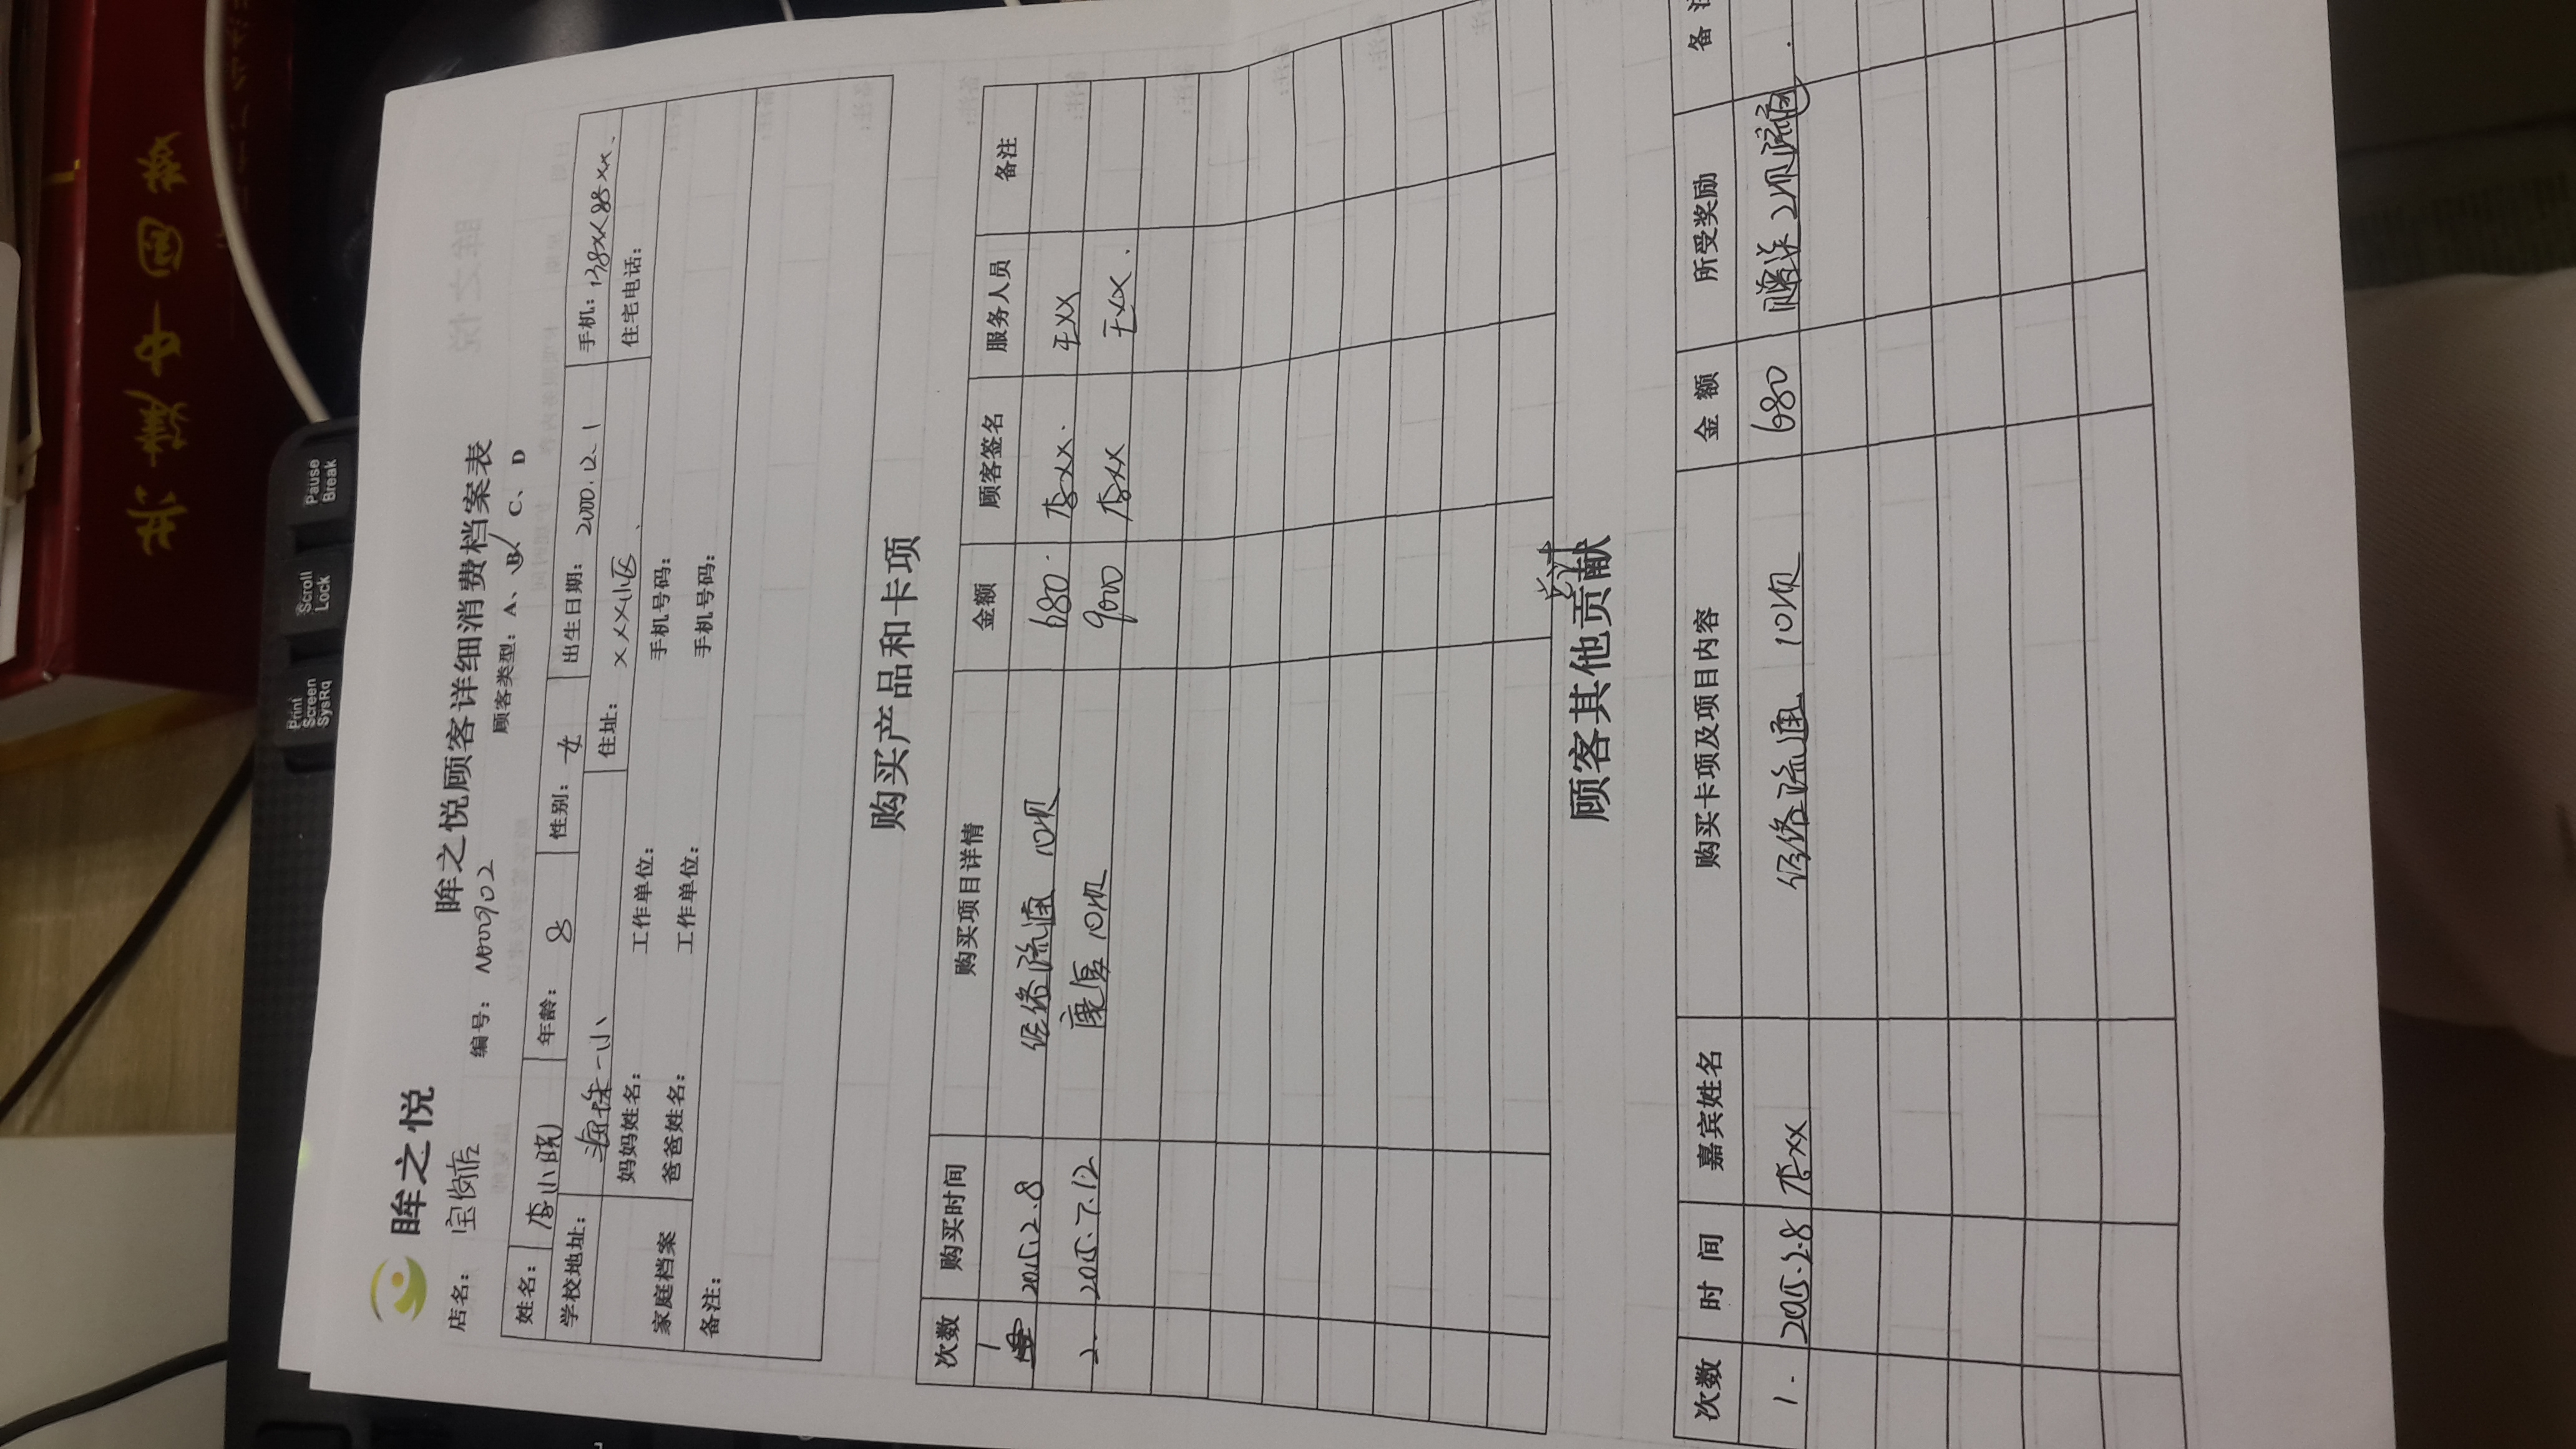 共建中国梦
Print
Screen
SysRq
Scroll
Lock
Pause
Break
眸之悦
眸之悦顾客详细消费档案表
店名： 宝岗店 编号： N000902 顾客类型：A、B、C、D
姓名： 李小晓 年龄： 8 性别： 女 出生日期： 2000.12.1 手机：138xx88xx.
学校地址： 海珠一小 住址： xxx小区. 住宅电话：
家庭档案 妈妈姓名： 工作单位： 手机号码：
爸爸姓名： 工作单位： 手机号码：
备注：
购买产品和卡项
次数 购买时间 购买项目详情 金额 顾客签名 服务人员 备注
1 2015.2.8 经络疏通 10次 680 李xx. 王xx
2. 2015.7.12 康复10次 9000 李xx 王xx.
总计
顾客其他贡献
次数 时间 嘉宾姓名 购买卡项及项目内容 金额 所受奖励 备注
1. 2015.2.8 李xx 经络疏通 10次 680 赠送2次疏通.